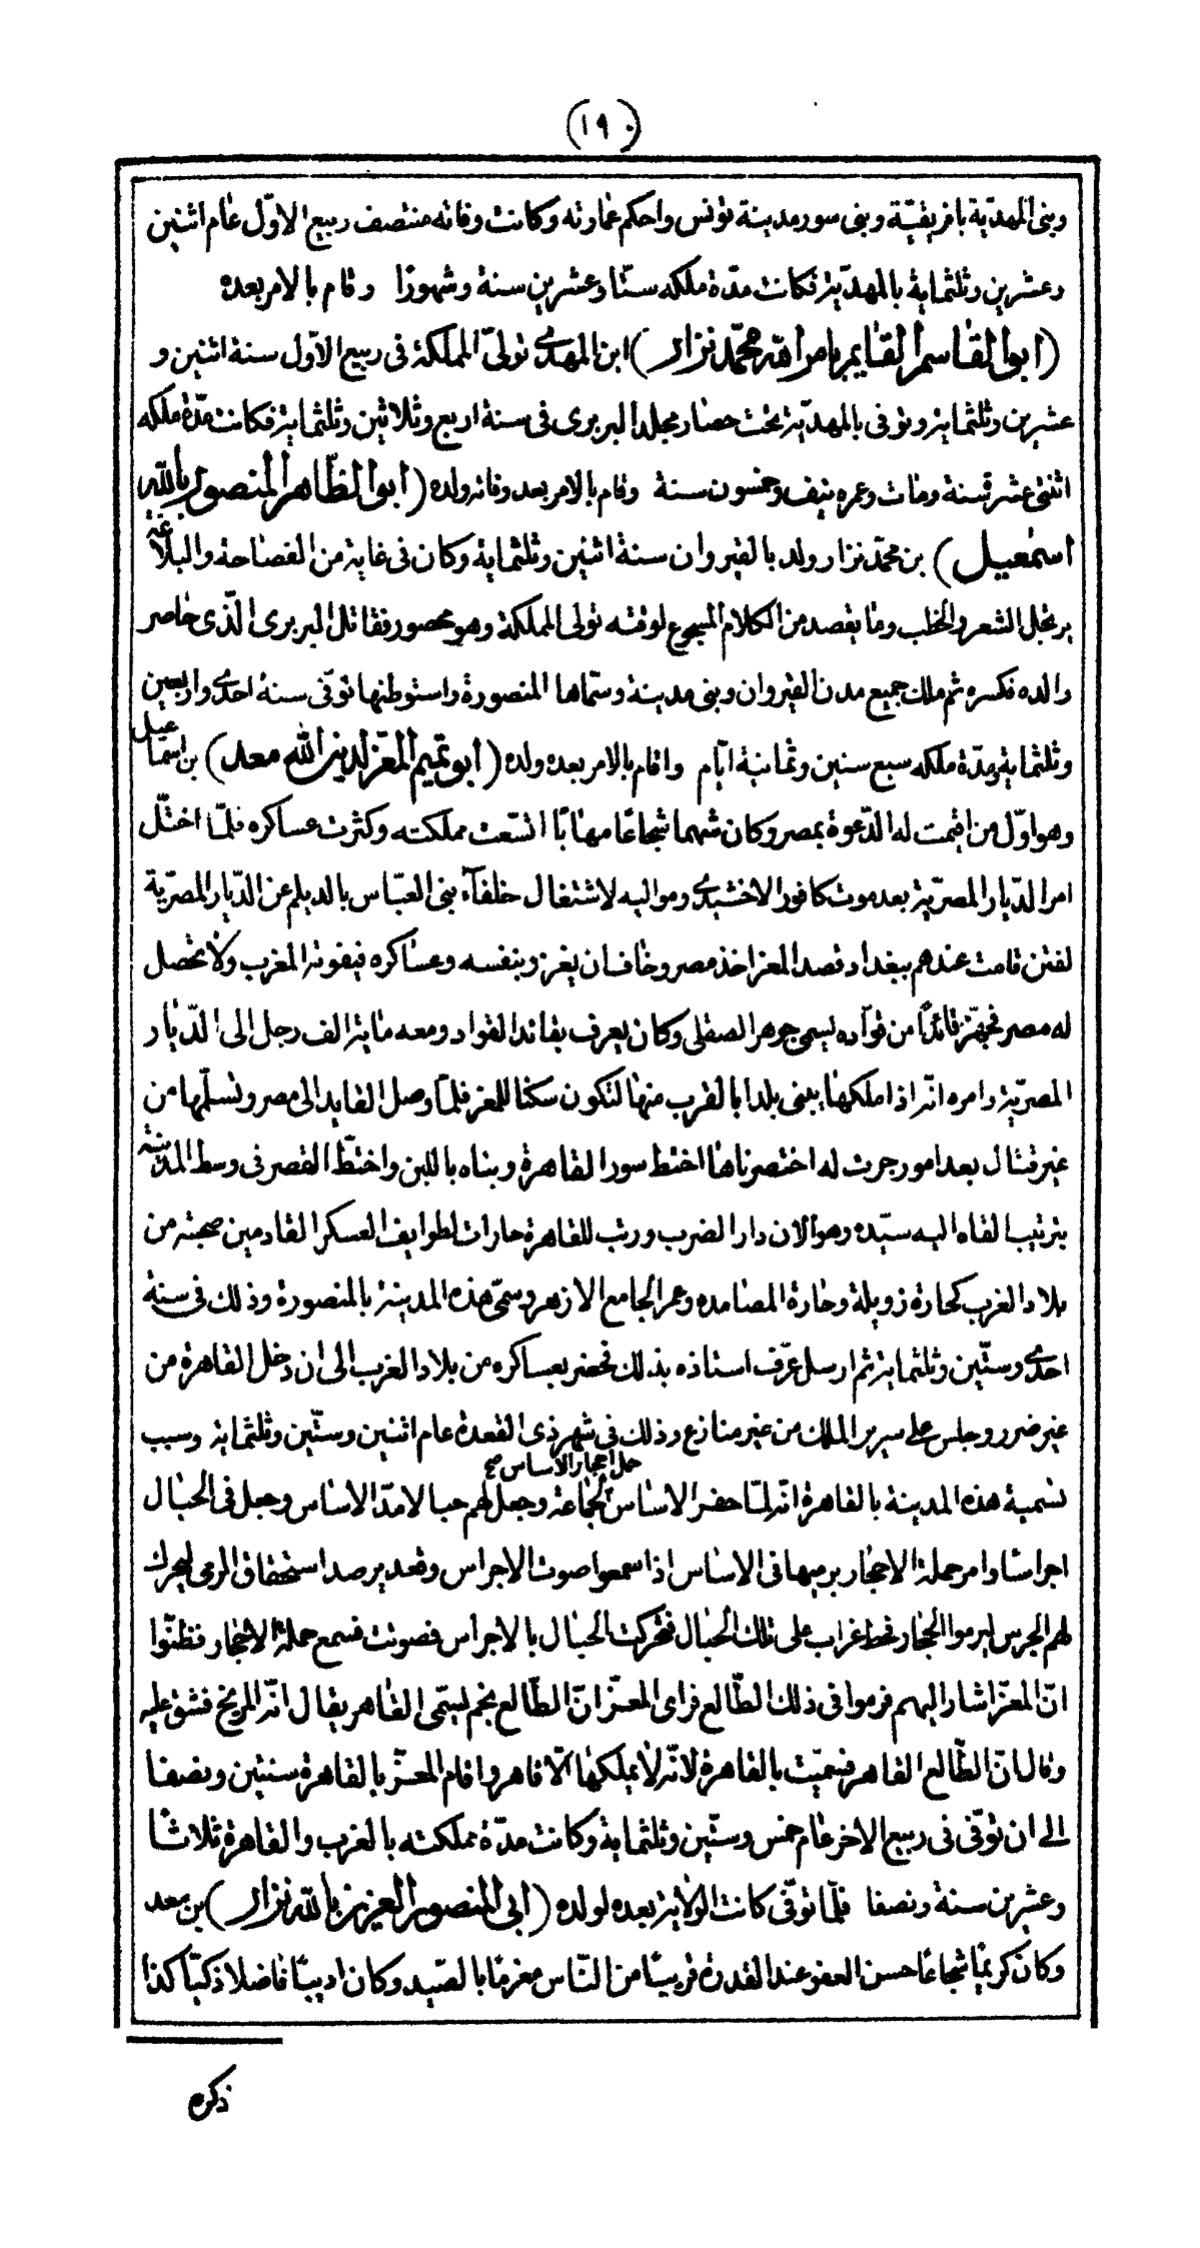 (١٩٠)
وبنى المهديّة بافريقيّة وبنى سور مدينة تونس واحكم عمارته وكانت وفاته منتصف ربيع الاوّل عام اثنين
وعشرين وثلثماية بالمهديّة فكانت مدّة ملكه ستّا وعشرين سنة وشهورًا وقام بالامر بعده
(ابو القاسم القايم بامر الله محمّد نزار) ابن المهدى تولّى المملكة فى ربيع الاوّل سنة اثنين و
عشرين وثلثماية وتوفى بالمهديّة تحت حصار مجلد البربرى فى سنة اربع وثلاثين وثلثماية فكانت مدّة ملكه
اثنتى عشرة سنة ومات وعمره نيف وخمسون سنة وقام بالامر بعد وفاته ولده (ابو الظّاهر المنصور بالله
اسمعيل) بن محمّد نزار ولد بالقيروان سنة اثنين وثلثماية وكان فى غاية من الفصاحة والبلاغة
يرتجل الشعر والخطب وما يقصد من الكلام المسجوع لوقته تولى المملكة وهو محصور فقاتل البربرى الّذى حاصر
والده فكسره ثم ملك جميع مدن القيروان وبنى مدينة وسمّاها المنصورة واستوطنها توفّى سنة احدى واربعين
وثلثماية ومدّة ملكه سبع سنين وثمانية ايّام واقام بالامر بعده ولده (ابو تميم المعزّ لدين الله معد) بن اسمّاعيل
وهو اوّل من اقيمت له الدّعوة بمصر وكان شهما شجاعًا مهابًا اتّسعت مملكته وكثرت عساكره فلمّا اختّل
امر الدّيار المصريّة بعد موت كافور الاخشيدى ومواليه لاشتغال خلفآء بنى العبّاس بالديلم عن الدّيار المصريّة
لفتن قامت عندهم ببغداد قصد المعز اخذ مصر وخاف ان يغزو بنفسه وعساكره فيفوته المغرب ولا تحصل
له مصر فجهّز قائدًا من قوّاده يسمى جوهر الصقلى وكان يعرف بقاند القواد ومعه ماية الف رجل الى الدّيار
المصريّة وامره انّه اذا ملكها يبنى بلدا بالقرب منها لتكون سكنا للمعز فلمّا وصل القايد الى مصر وتسلّمها من
غير قتال بعد امور جرت له اختصرناها اختط سور القاهرة وبناه باللبن واختطّ القصر فى وسط المدينة
بترتيب القاه اليه سيّده وهو الان دار الضرب ورتب للقاهرة حارات لطوايف العسكر القادمين صحبته من
بلاد الغرب كحارة زويلة وحارة المصامده وعمر الجامع الازهر وسمّى هذه المدينة بالمنصورة وذلك فى سنة
احدى وستّين وثلثماية ثم ارسل عرّف استاذه بذلك فحضر بعساكره من بلاد الغرب الى ان دخل القاهرة من
غير ضرر وجلس على سرير الملك من غير منازع وذلك فى شهر ذى القعدة عام اثنين وستّين وثلثماية وسبب
حمل احجار الاساس صح
تسمية هذه المدينة بالقاهرة انّه لمّا حضر الاساس لجماعة وجعل لهم حبالا مدّا الاساس وجعل فى الحبال
اجراسًا وامر حملة الاحجار برميها فى الاساس اذا سمعوا صوت الاجراس وقعد يرصد استحقاق الرمى ليحرك
لهم الجرس ليرموا الحجار فحط غراب على تلك الحبال فتحركت الحبال بالاجراس فصوتت فسمع حملة الاحجار فظنّوا
انّ المعزّ اشار اليهم فرموا فى ذلك الطّالع فراى المعزّ انّ الطّالع نجم ليسمّى القاهر يقال انّه المريخ فشق عليه
وقال انّ الطّالع القاهر فسميّت بالقاهرة لانّه لا يملكها الّا قاهر واقام المعزّ بالقاهرة سنتين ونصفا
الى ان توفّى فى ربيع الاخر عام خمس وستّين وثلثماية وكانت مدّة مملكته بالغرب والقاهرة ثلاثًا
وعشرين سنة ونصفا فلمّا توفّى كانت الولاية بعده لولده (ابى المنصور العزيز بالله نزار) بن معد
وكان كريمًا شجاعًا حسن العفو عند القدرة قريبًا من النّاس مغرمًا بالصّيد وكان اديبًا فاضلا ذكيّا كذا
ذكره